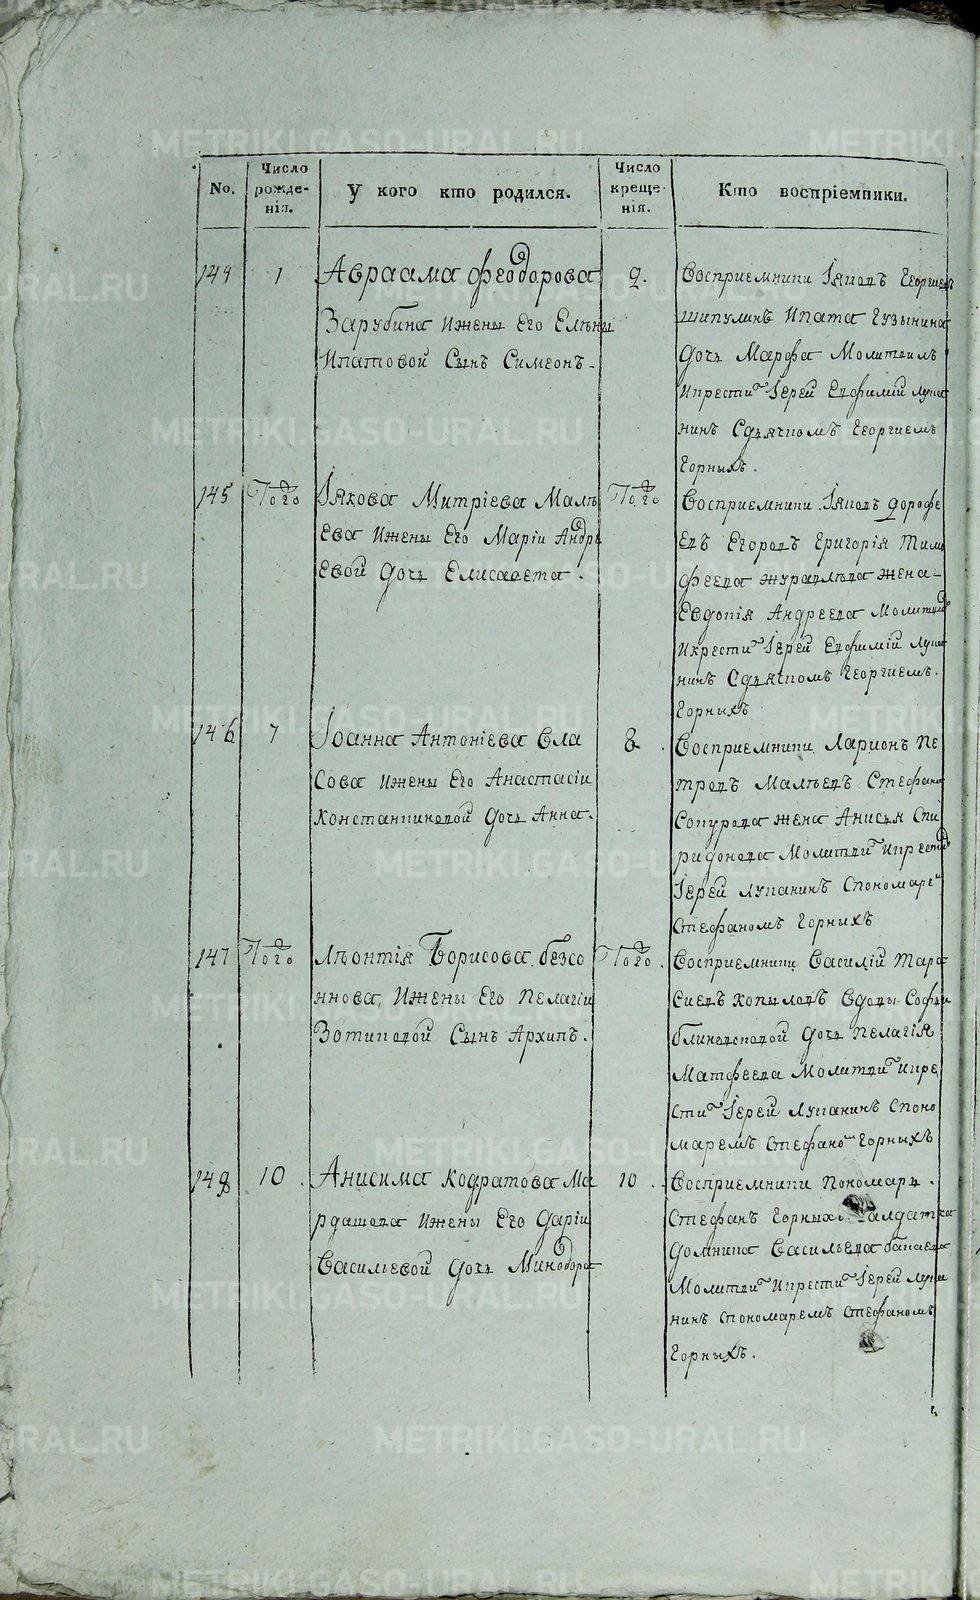 No.
Число рожде- нія.
У кого кто родился.
Число креще- нія.
Кто воспріемники.
144
1
Авраама Феодорова
Зарубина ижены Его Елены
Ипатовой Сынъ Симеонъ.
2.
Восприемники Іяковъ Георгиевъ
шипулинъ Ипата Гузынина
дочь Марфа Молитвилъ
икрести Іерей Ефимий Лупа
нинъ Сдьячкомъ Георгиемъ
Горныхъ.
145
Того
Іякова Митріева Малѣ
Ева Ижены Его Маріи Андре
Евой дочь Елисавета.
Того
Восприемники Іяковъ дорофе
Евъ Егоровъ Григорія Тимо
феева журавлева жена
Евдокія Андреева Молитвил
Икрести Іерей Ефимій Лупа
нинъ Сдьячкомъ Георгиемъ.
Горныхъ
146
7
Іоанна Антоніева Вла
сова ижены Его Анастасіи
Константиновой дочь Анна.
8.
Восприемники Ларионъ Пе
тровъ Малѣевъ Стефана
жена Анисья Спи
ридонова Молитви икрести
Іерей Лупанинъ Спономаре
Стефаномъ Горныхъ
147
Того
Лѣонтія Борисова безсо
ннова, Ижены Его Пелагіи
Зотиковой Сынъ Архипъ.
Того.
Восприемники Василій Тара
сиевъ копыловъ Вдовы Софьи
дочь Пелагія
Матфеева Молитви икре
сти Іерей Лупанинъ Споно
маремъ Стефано Горныхъ
148
10.
Анисима Кодратова Ма
рдашова ижены Его Даріи
Васильевой дочь Минодора
10.
Восприемники Пономарь.
Стефанъ Горныхъ Салдатка
Домника Васильева
Молитви икрести Іерей Лупа
нинъ Спономаремъ Стефаномъ
Горныхъ.
METRIKI.GASO-URAL.RU